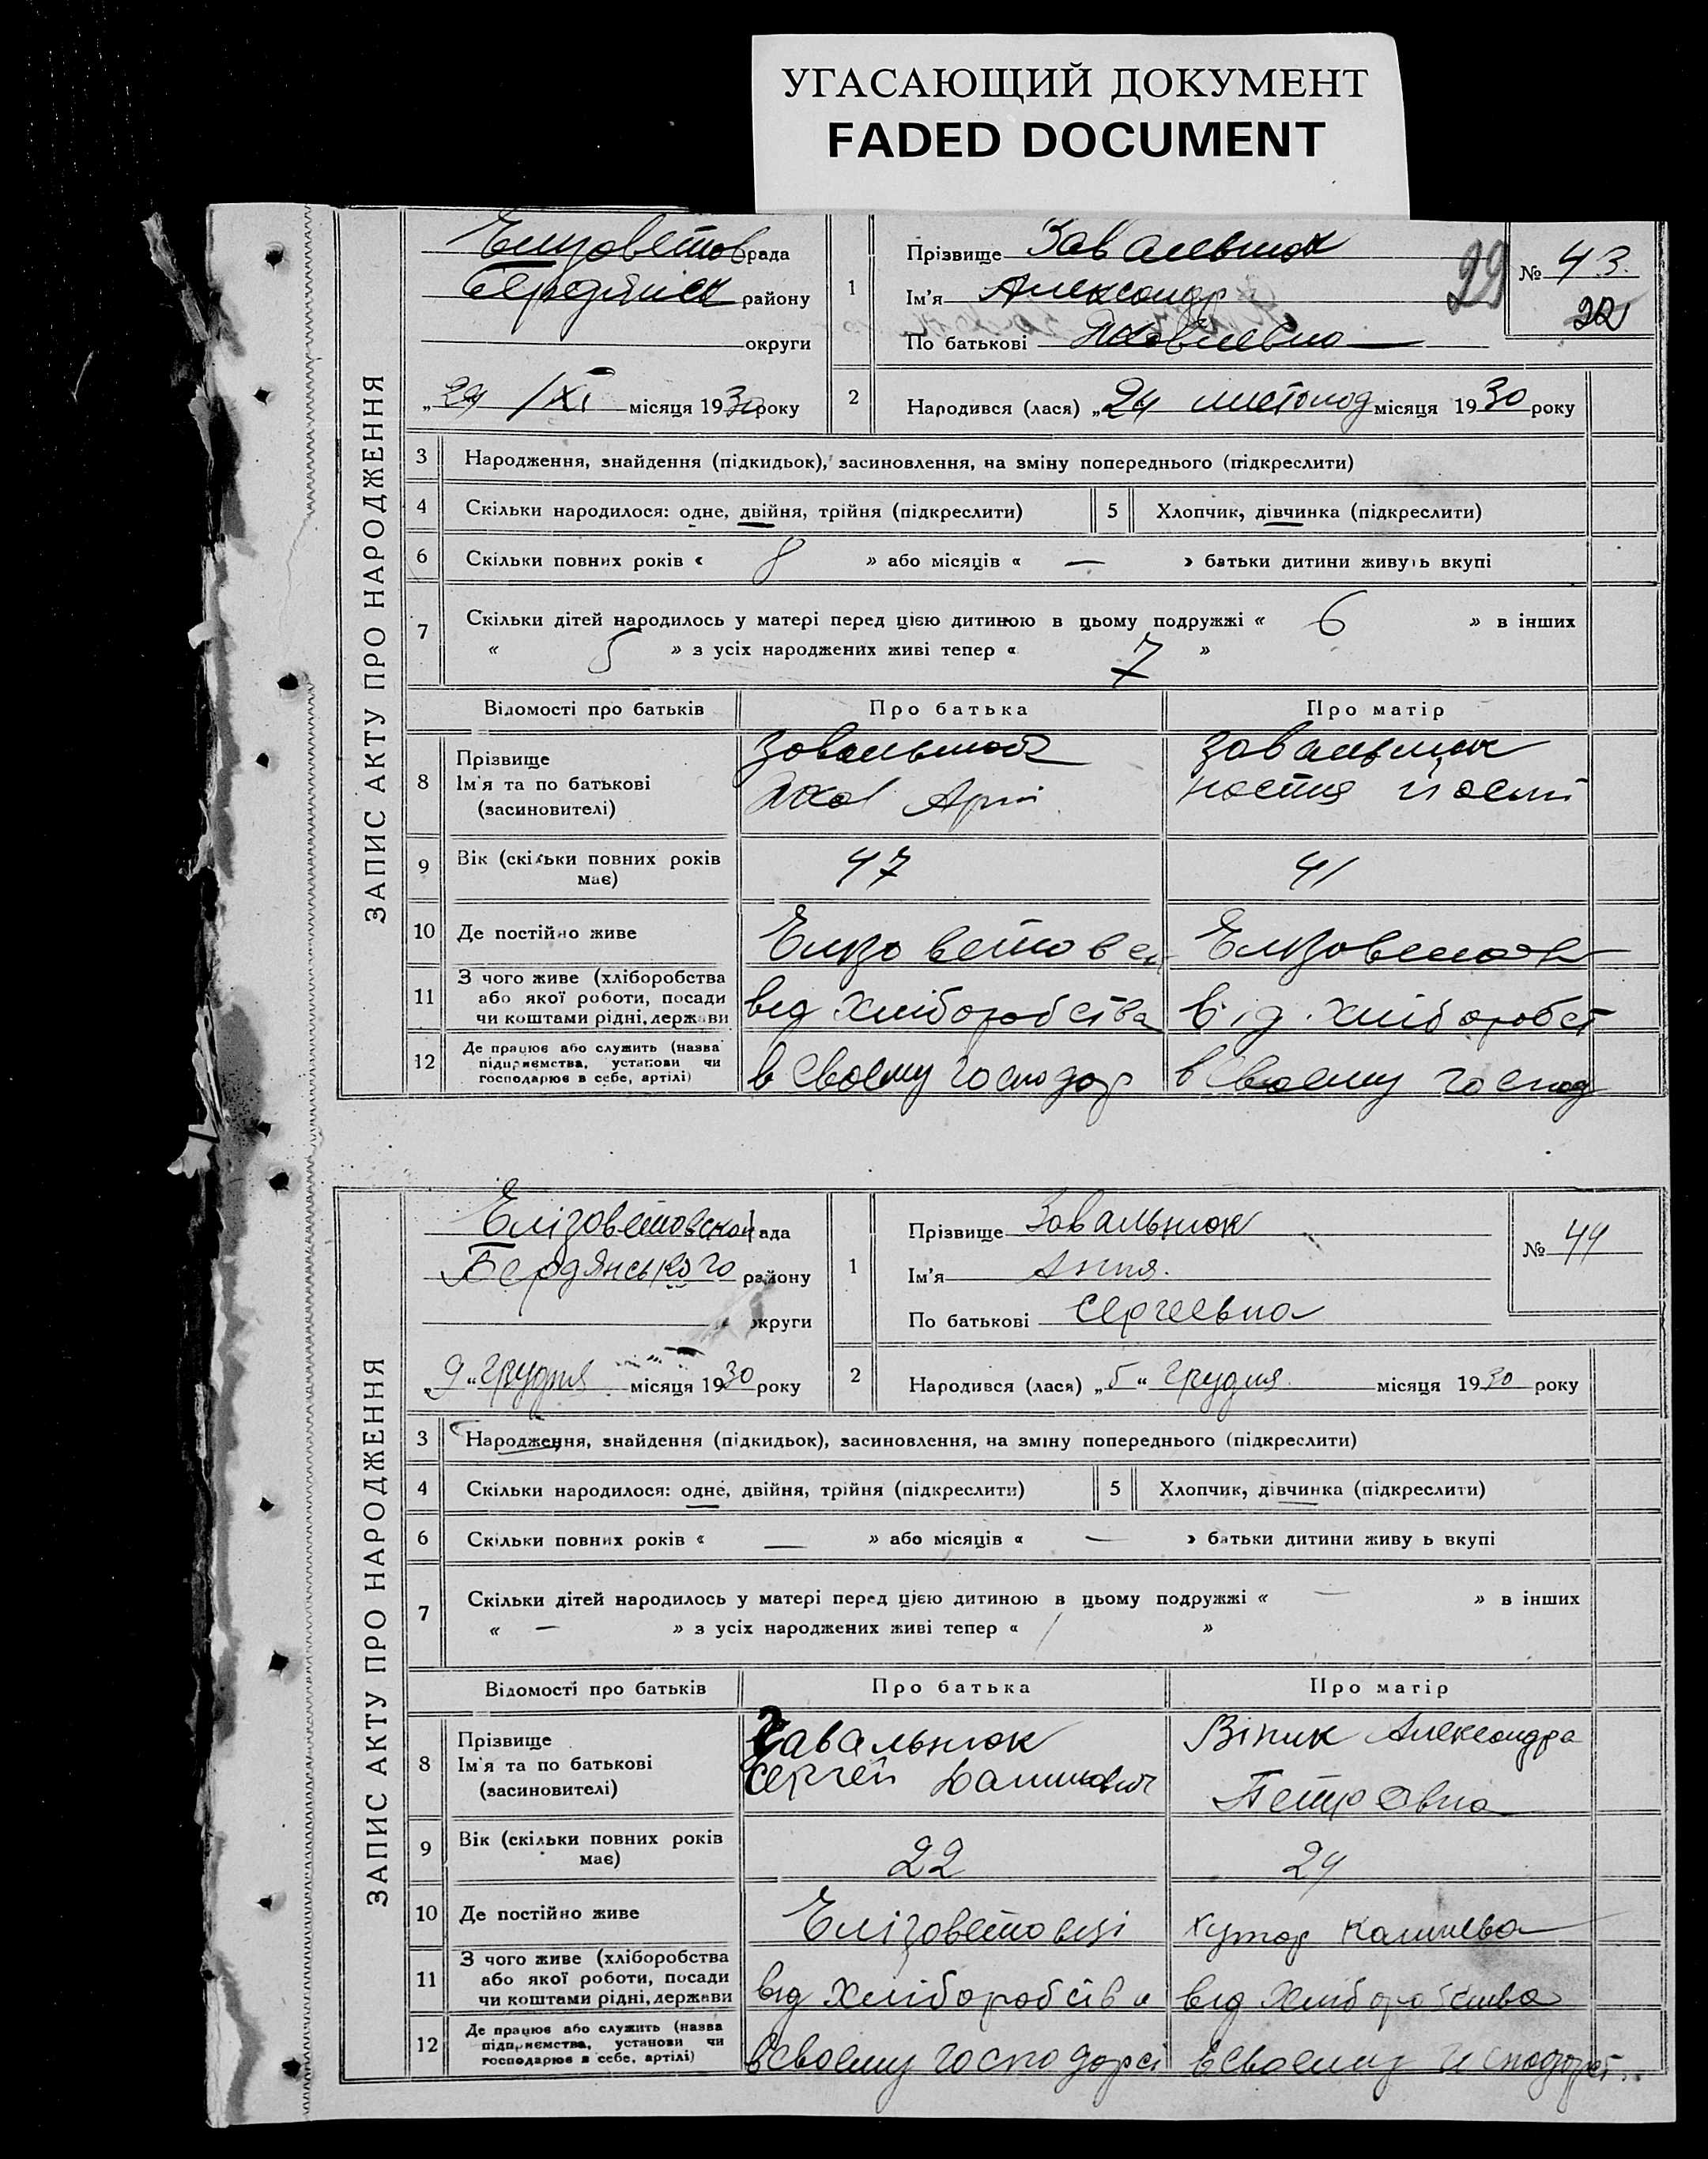 УГАСАЮЩИЙ ДОКУМЕНТ
FADED DOCUMENT
ЗАПИС АКТУ ПРО НАРОДЖЕННЯ
Елизоветов рада
Бердянск району
округи
„24 /XI місяця 1930 року
1
Прізвище Завальнюк
Ім'я Александр
По батькові Яковлевна
29
№ 43.
22
2
Народився (лася) „24 листопод місяця 1930 року
3 Народження, знайдення (підкидьок), засиновлення, на зміну попереднього (підкреслити)
4 Скільки народилося: одне, двійня, трійня (підкреслити) 5 Хлопчик, дівчинка (підкреслити)
6 Скільки повних років « 8 » або місяців « — » батьки дитини живуть вкупі
7 Скільки дітей народилось у матері перед цією дитиною в цьому подружжі « 6 » в інших
« 5 » з усіх народжених живі тепер « 7 »
Відомості про батьків Про батька Про матір
8 Прізвище
Ім'я та по батькові
(засиновителі)
Завальнюк
Яков
Завальнюк
Настя
9 Вік (скільки повних років має) 47 41
10 Де постійно живе
11 З чого живе (хліборобства
або якої роботи, посади
чи коштами рідні, держави
від хліборобства від. хліборобст
12 Де працює або служить (назва
підприємства, установи чи
господарює в себе, артілі)
в своему господар в своему господ
ЗАПИС АКТУ ПРО НАРОДЖЕННЯ
Елізоветовской рада
Бердянського району
округи
„9 “ грудня місяця 1930 року
1
Прізвище Завальнюк
Ім'я Анна.
По батькові Сергеевна
№ 44
2
Народився (лася) „5 “ грудня місяця 1930 року
3 Народження, знайдення (підкидьок), засиновлення, на зміну попереднього (підкреслити)
4 Скільки народилося: одне, двійня, трійня (підкреслити) 5 Хлопчик, дівчинка (підкреслити)
6 Скільки повних років « — » або місяців « — » батьки дитини живу ь вкупі
7 Скільки дітей народилось у матері перед цією дитиною в цьому подружжі « — » в інших
« — » з усіх народжених живі тепер « / »
Відомості про батьків Про батька Про матір
8 Прізвище
Ім'я та по батькові
(засиновителі)
Завальнюк
Сергей
Виник Александра
Петровна
9 Вік (скільки повних років має) 22 24
10 Де постійно живе Елізоветовці хутор
11 З чого живе (хліборобства
або якої роботи, посади
чи коштами рідні, держави
від хліборобства від хліборобства
12 Де працює або служить (назва
підприємства, установи чи
господарює в себе, артілі)
в своему господарсі в своему господарст.